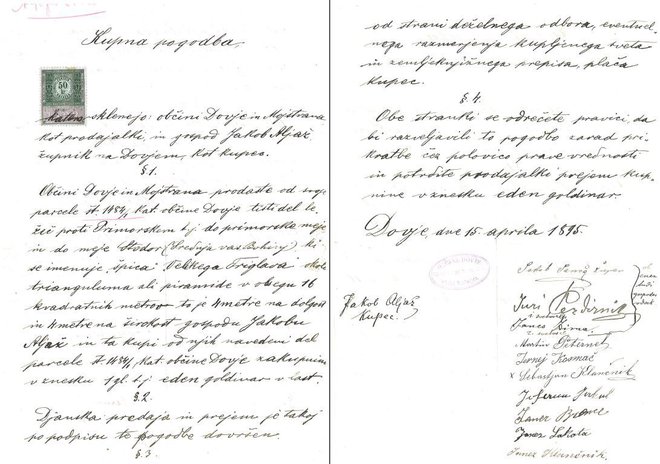 Kupna pogodba,
50
katero sklenejo: občini Dovje in Mojstrana
kot prodajalki, in gospod Jakob Aljaž
župnik na Dovjem, kot kupec.
§ 1.
Občini Dovje in Mojstrana prodaste od svoje
parcele št 1484/1 kat. občine Dovje tisti del le-
žeč proti Primorskem t.j. do primorske meje
in do meje Studor (Srednja vas Bohinj) ki
se imenuje „špica" Velikega Triglava okolu
trianguluma ali piramide v obsegu 16
kvadratnih metrov to je 4 metre na dolgost
in 4 metre na širokost gospodu Jakobu
Aljaž in ta kupi od njih navedeni del
parcele št 1484/1 kat. občine Dovje za kupnino
v znesku 1 gl t.j. eden goldinar v last.
§ 2.
Djanska predaja in prejem je takoj
po podpisu te pogodbe dovršen.
§ 3.
od strani deželnega odbora, eventuel-
nega razmerjenja kupljenega sveta
in zemljeknjižnega prepisa, plača
kupec.
§ 4.
Obe stranki se odrečete pravici, da
bi razveljavili to pogodbo zarad pri-
kratbe čez polovico prave vrednosti
in potrdite prodajalke prejem kup-
nine v znesku eden goldinar.
Dovje, dne 15. aprila 1895.
Jakob Aljaž
kupec.
Juri Pezdirnik
Janez
Martin
Jernej Kosmač
x Sebastjan Klančnik
Janez
Janez Lakota
Janez Klančnik